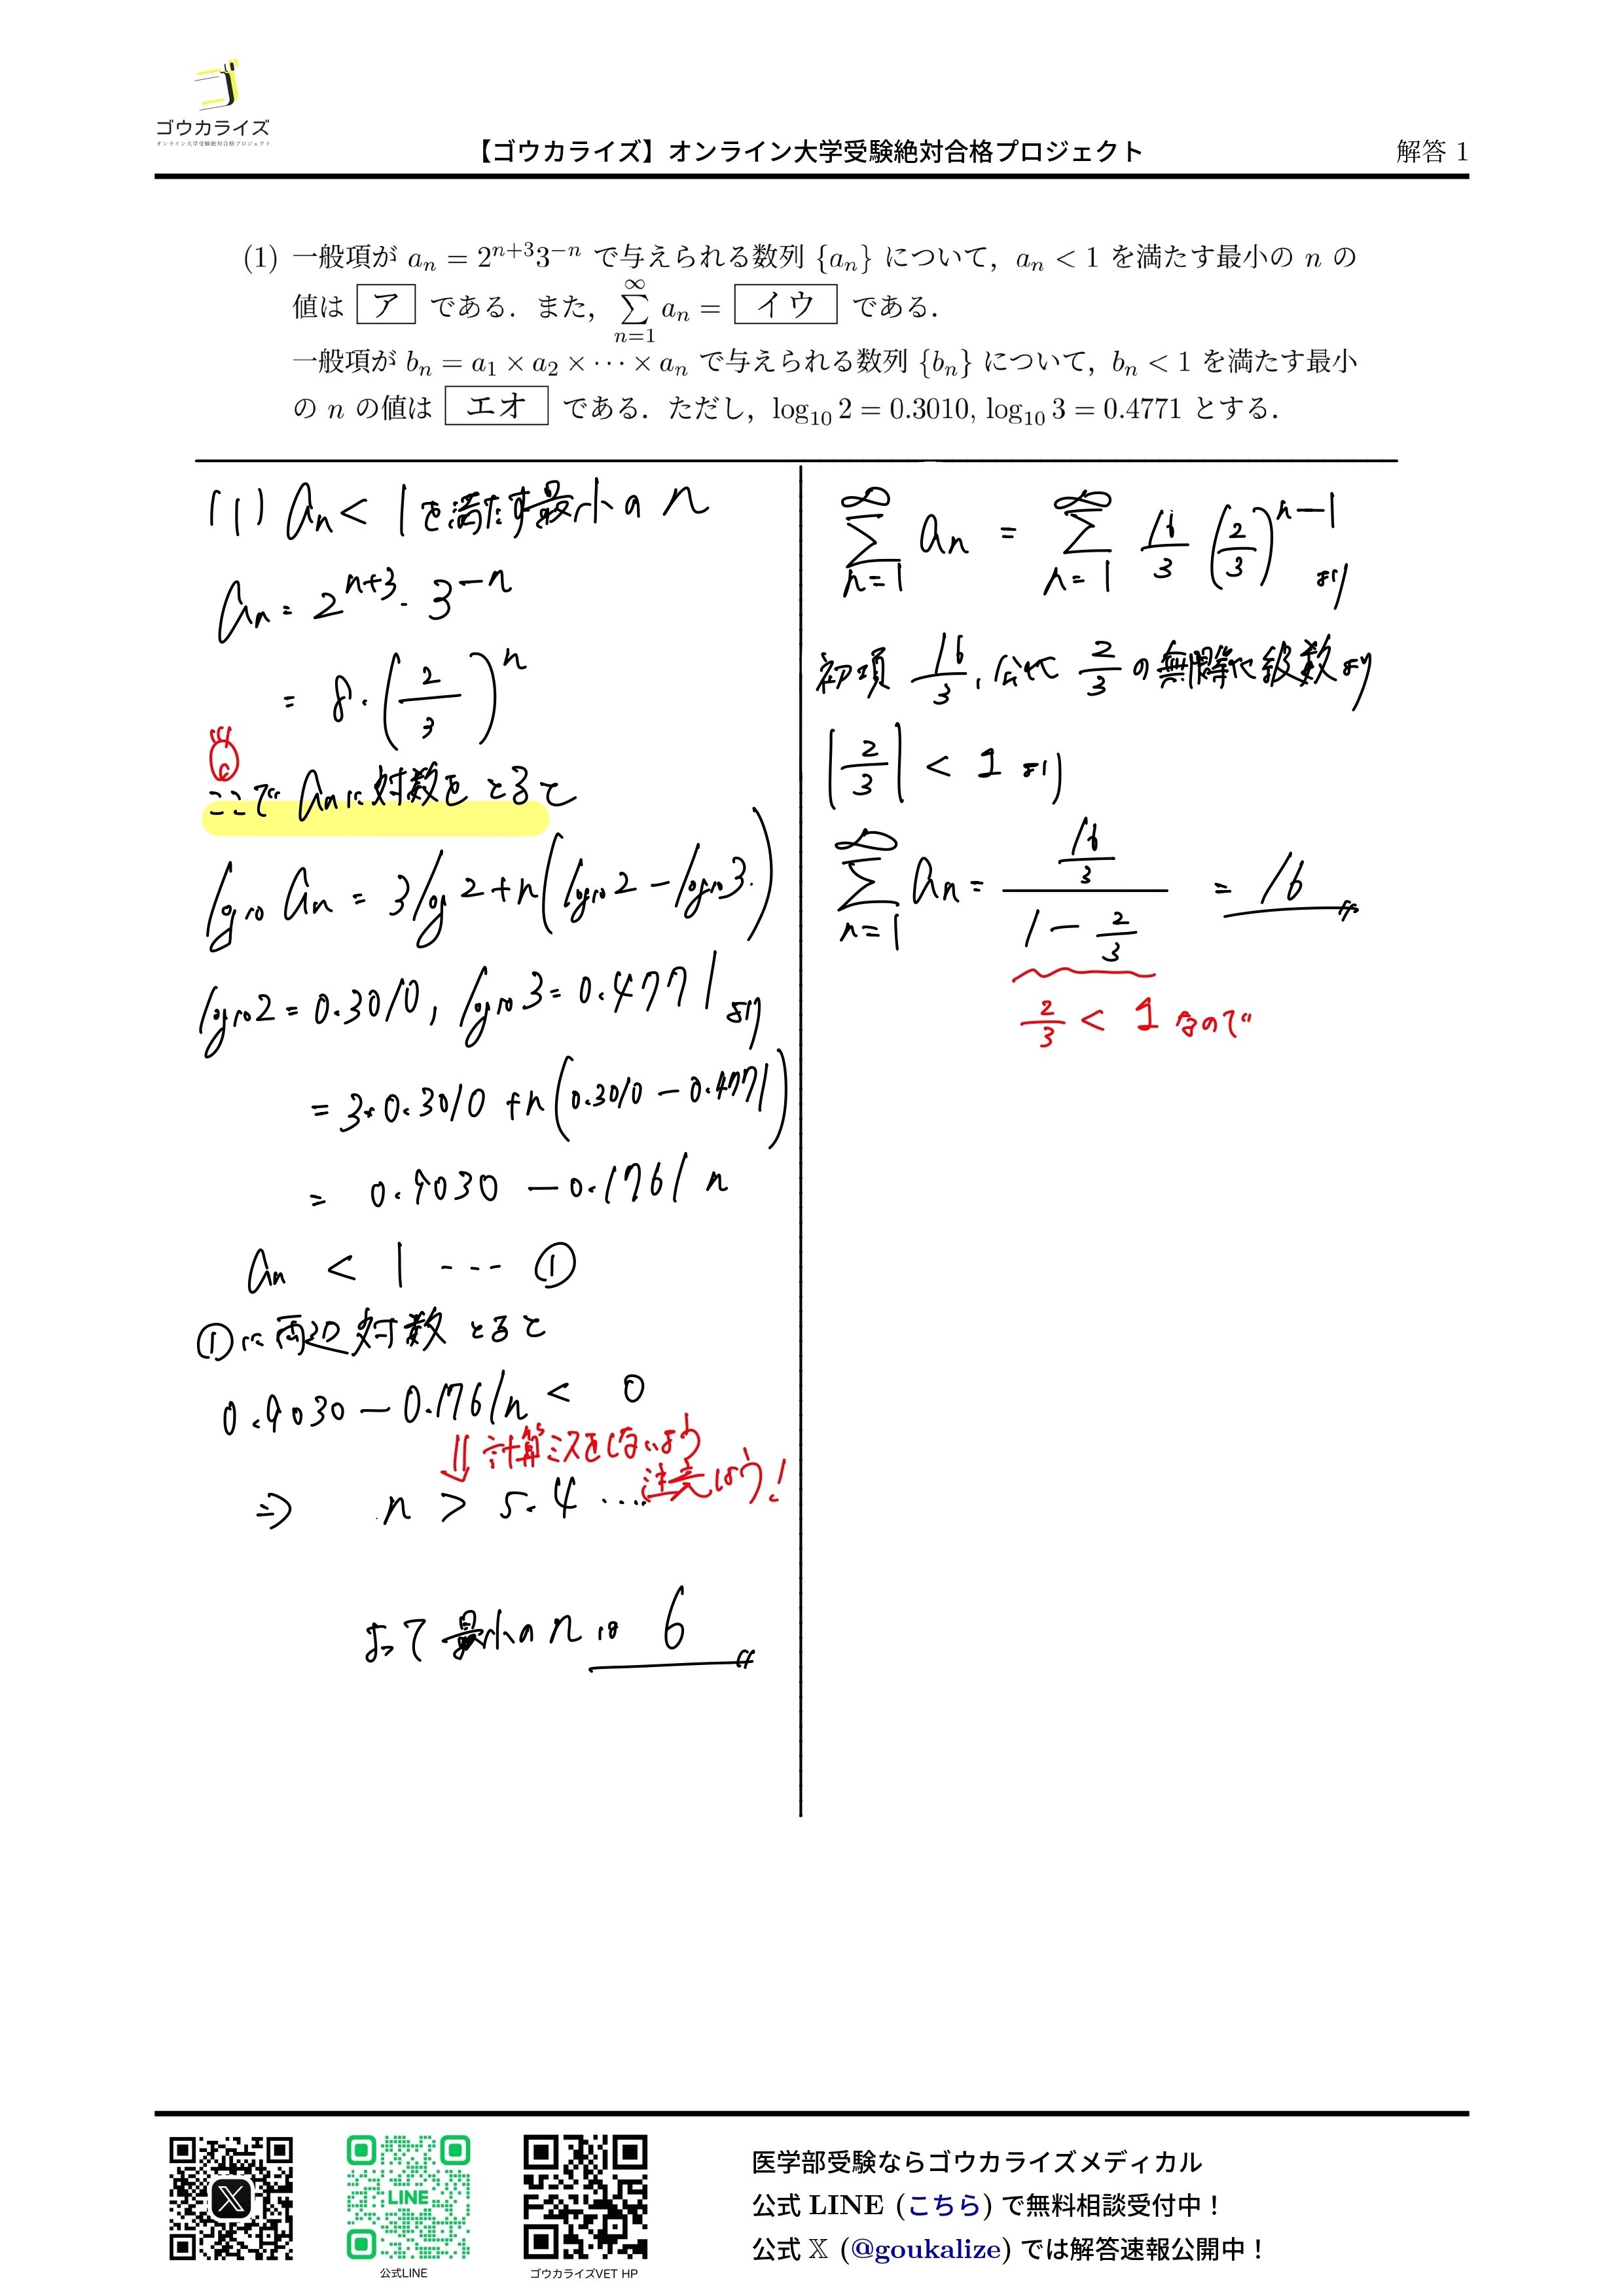 ゴウカライズ
オンライン大学受験絶対合格プロジェクト
【ゴウカライズ】オンライン大学受験絶対合格プロジェクト
解答 1
(1) 一般項が a_n = 2^{n+3}3^{-n} で与えられる数列 {a_n} について，a_n < 1 を満たす最小の n の
値は ア である．また，\sum_{n=1}^{∞} a_n = イウ である．
一般項が b_n = a_1 × a_2 × ⋯ × a_n で与えられる数列 {b_n} について，b_n < 1 を満たす最小
の n の値は エオ である．ただし，log_{10} 2 = 0.3010, log_{10} 3 = 0.4771 とする．
(1) a_n < 1 を満たす最小の n
a_n = 2^{n+3}・3^{-n}
= 8・(2/3)^n
ここで a_n に対数をとると
log_{10} a_n = 3log 2 + n(log_{10} 2 − log_{10} 3)
log_{10} 2 = 0.3010, log_{10} 3 = 0.4771 より
= 3・0.3010 + n(0.3010 − 0.4771)
= 0.9030 − 0.1761 n
a_n < 1 … ①
①に両辺対数とると
0.9030 − 0.1761n < 0
⇓ 計算ミスをしないよう
注意しよう！
⇒ n > 5.4 …
よって 最小の n は 6
\sum_{n=1}^{∞} a_n = \sum_{n=1}^{∞} 16/3 (2/3)^{n−1} より
初項 16/3, 公比 2/3 の無限等比級数より
|2/3| < 1 より
\sum_{n=1}^{∞} a_n = (16/3)/(1 − 2/3) = 16
2/3 < 1 なので
LINE
公式LINE
ゴウカライズVET HP
医学部受験ならゴウカライズメディカル
公式 LINE (こちら) で無料相談受付中！
公式 𝕏 (@goukalize) では解答速報公開中！